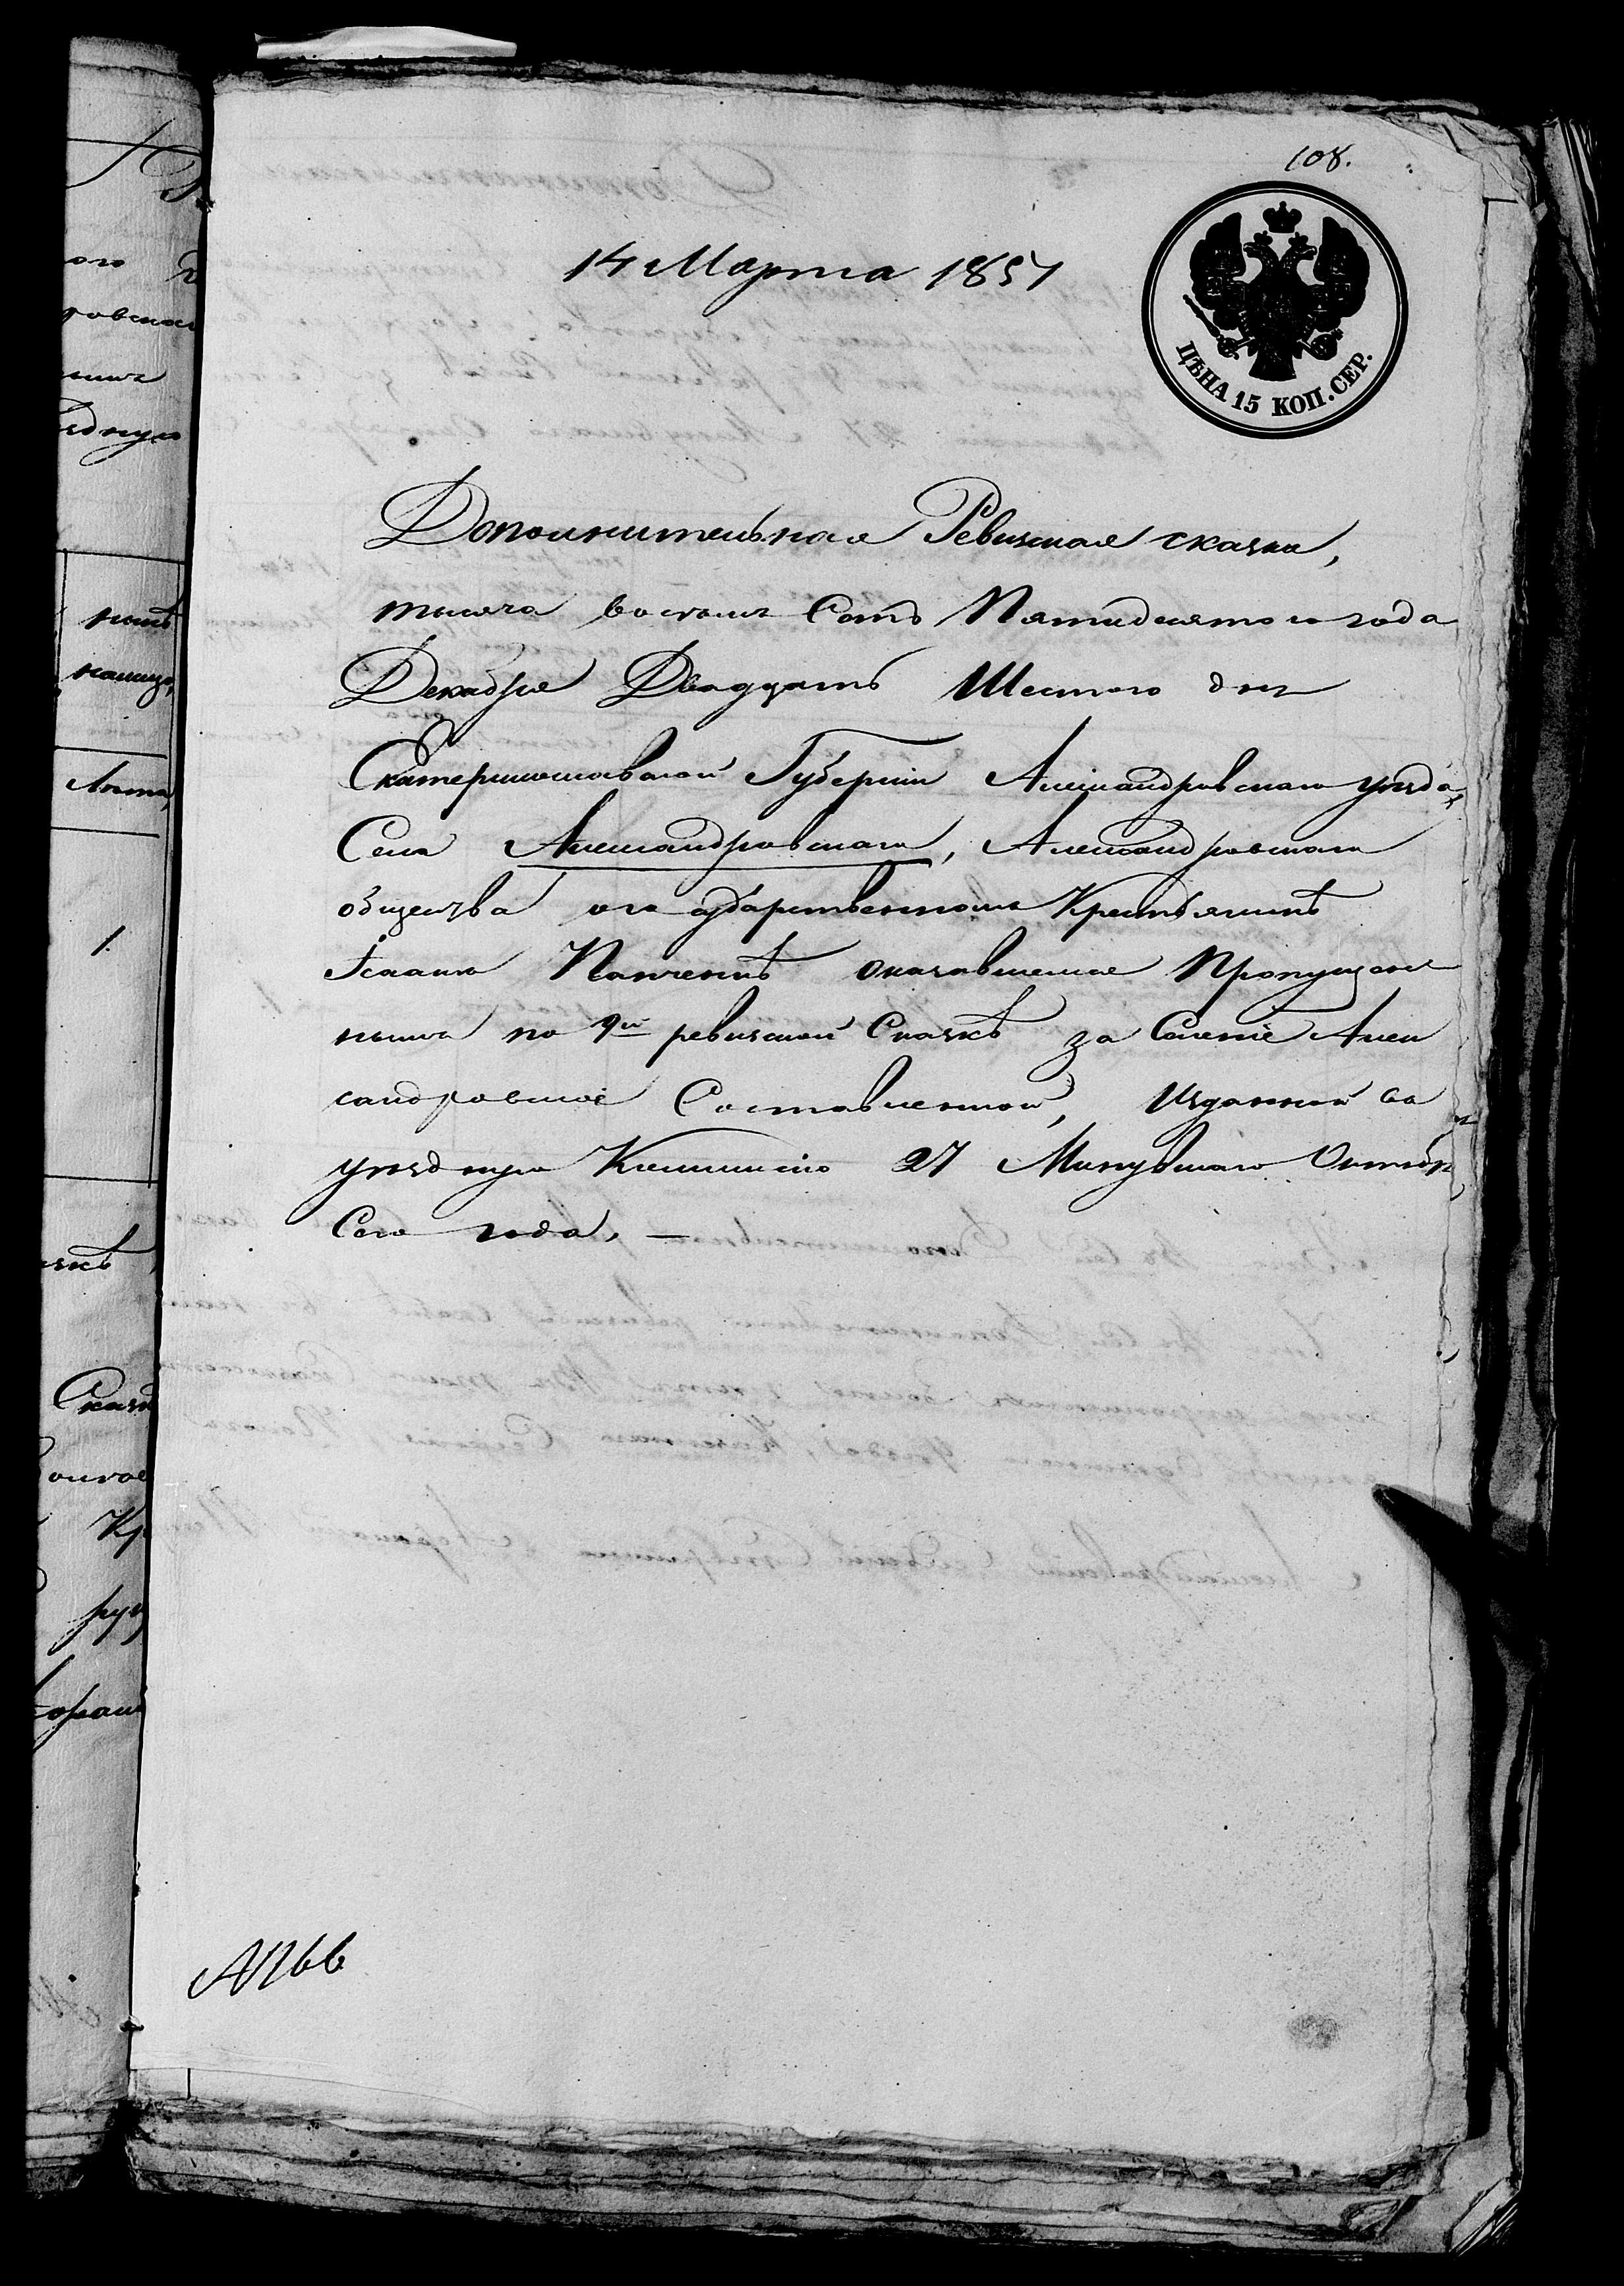 108.
14 Марта 1851
ЦѢНА 15 КОП. СЕР.
Дополнительная Ревизская сказка,
тысяча восемь Сотъ Пятидесятого года
Декабря Двадцать Шестого дня
Екатеринославской Губерніи Александровскаго уѣзда,
Села Александровскаго, Александровскаго
общества о государственномъ Крестьянинѣ
Панченкѣ оказавшемся Пропущен
нымъ по 9й ревизской Сказкѣ за Селеніе Алек
сандровское Составленной, Изданной въ
уѣздную Комиссію 27 Минувшаго Октябр
Сего года. —
№166